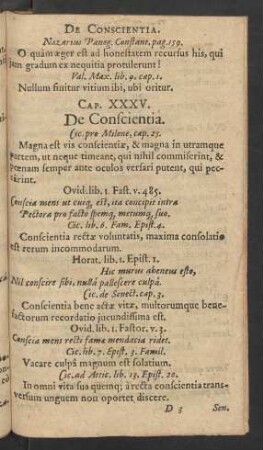 DE CONSCIENTIA.
Nazarius Paneg. Constant. pag. 159.
O quàm æger est ad honestatem recursus his, qui
jam gradum ex nequitia protulerunt!
Val. Max. lib. 9. cap. 1.
Nullum finitur vitium ibi, ubi oritur.
CAP. XXXV.
De Conscientia.
Cic. pro Milone, cap. 25.
Magna est vis conscientiæ, & magna in utramque
partem, ut neque timeant, qui nihil commiserint, &
pœnam semper ante oculos versari putent, qui pec-
cârint.
Ovid. lib. 1. Fast. v. 485.
Conscia mens ut cuiq; est, ita concipit intra
Pectora pro facto spemq; metumq; suo.
Cic. lib. 6. Fam. Epist. 4.
Conscientia rectæ voluntatis, maxima consolatio
est rerum incommodarum.
Horat. lib. 1. Epist. 1.
Hic murus aheneus esto,
Nil conscire sibi, nullâ pallescere culpâ.
Cic. de Senect. cap. 3.
Conscientia bene actæ vitæ, multorumque bene-
factorum recordatio jucundissima est.
Ovid. lib. 1. Fastor. v. 3.
Conscia mens recti famæ mendacia ridet.
Cic. lib. 7. Epist. 3. Famil.
Vacare culpâ magnum est solatium.
Cic. ad Attic. lib. 13. Epist. 20.
In omni vita sua quemq; à recta conscientia trans-
versum unguem non oportet discere.
D 5 Sen.